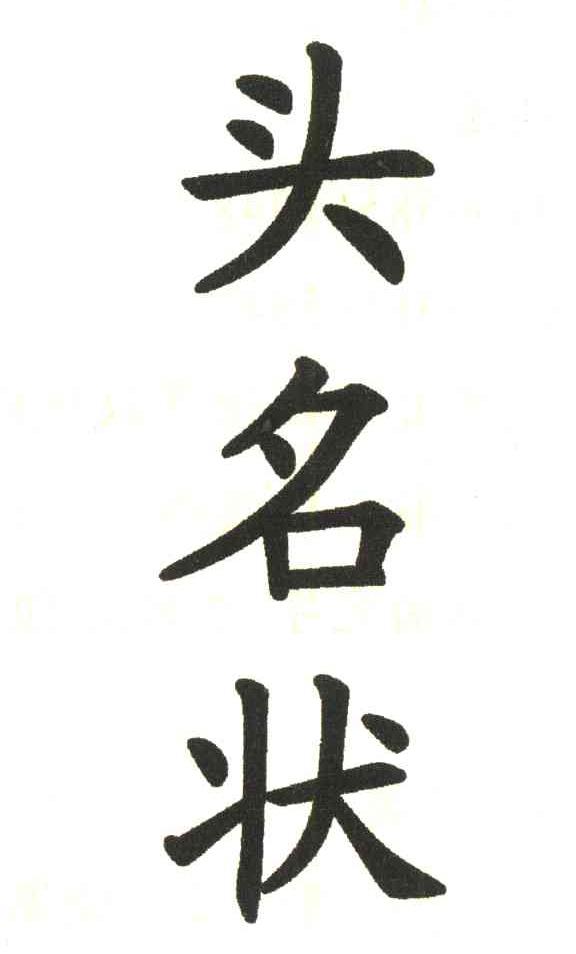 头名状